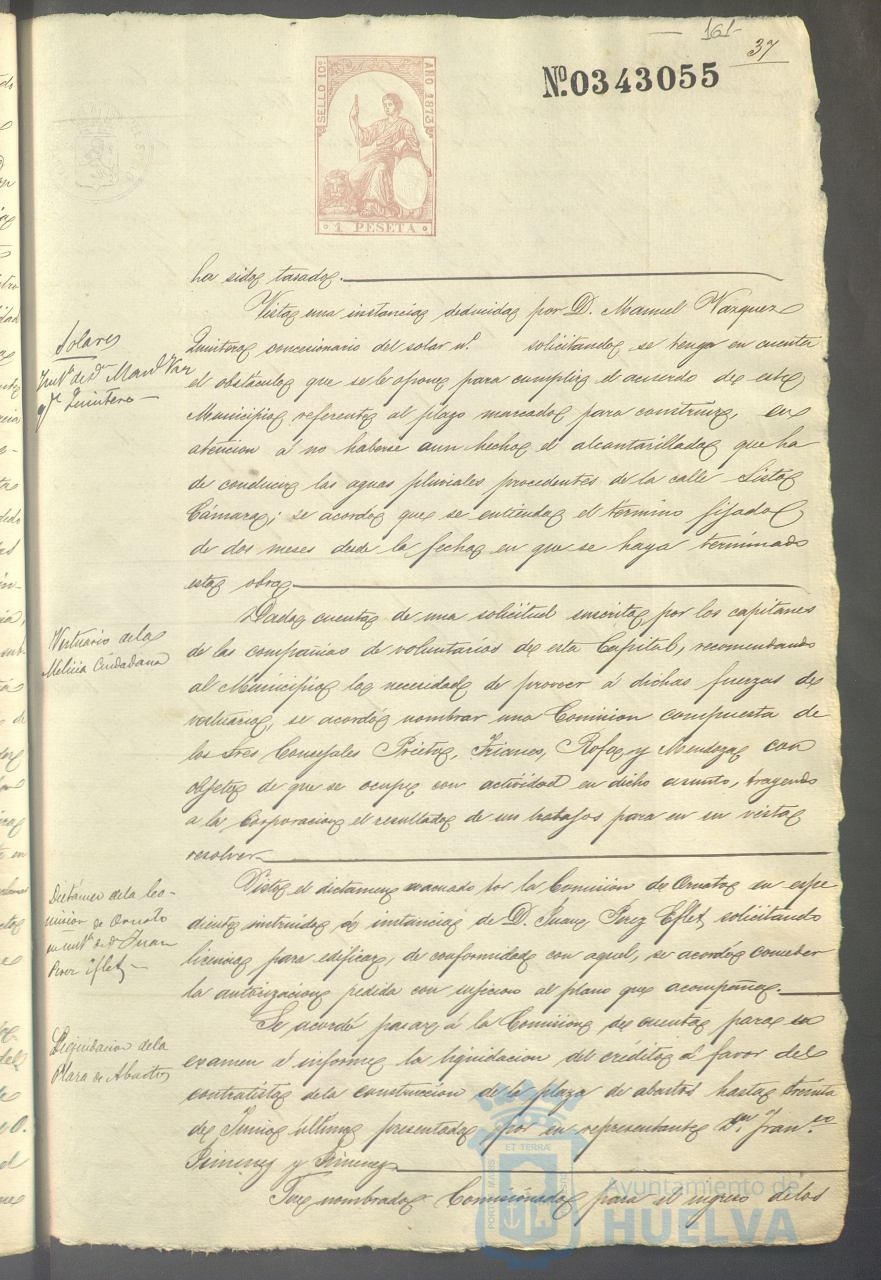 161
37
Nº 0343055
SELLO 10º AÑO 1873
1 PESETA
ha sido tasado.
Solares
Inst.ª de Dn Manl Vaz
qz Quintero
Vista una instancia deducida por D. Manuel Vazquez
Quintero, concesionario del solar nº. solicitando se tenga en cuenta
el obstáculo que se le opone para cumplir el acuerdo de este
Municipio referente al plazo marcado para construir, en
atencion á no haberse aun hecho el alcantarillado que ha
de conducir las aguas pluviales procedentes de la calle Lista
Cámara; se acordó que se entienda el término fijado
de dos meses desde la fecha en que se haya terminado
esta obra.
Vestuario de la
Milicia Ciudadana
Dada cuenta de una solicitud suscrita por los capitanes
de las compañias de voluntarios de esta Capital, recomendando
al Municipio la necesidad de proveer á dichas fuerzas de
vestuario, se acordó nombrar una Comision compuesta de
los Sres Concejales Prieto, Trianes, Rofa y Mendoza con
objeto de que se ocupe con actividad en dicho asunto, trayendo
a la Corporacion el resultado de sus trabajos para en su vista
resolver.
Dictámen de la Co-
mision de Ornato
en instª de Dn Juan
Perez Eflet
Visto el dictamen evacuado por la Comision de Ornato en espe
diente instruido á instancia de D. Juan Perez Eflet, solicitando
licencia para edificar, de conformidad con aquel, se acordó conceder
la autorizacion pedida con sujecion al plano que acompaña.
Liquidacion de la
Plaza de Abastos
Se acordó pasar á la Comision de cuentas para su
examen é informe la liquidacion del crédito á favor del
contratista de la construccion de la plaza de abastos hasta treinta
de Junio último presentada por su representante Dn Franco
Jimenez y Jimenez.
Fue nombrado Comisionado para el ingreso de los
PORTUS MARIS ET TERRÆ CUSTODIA
Ayuntamiento de
HUELVA